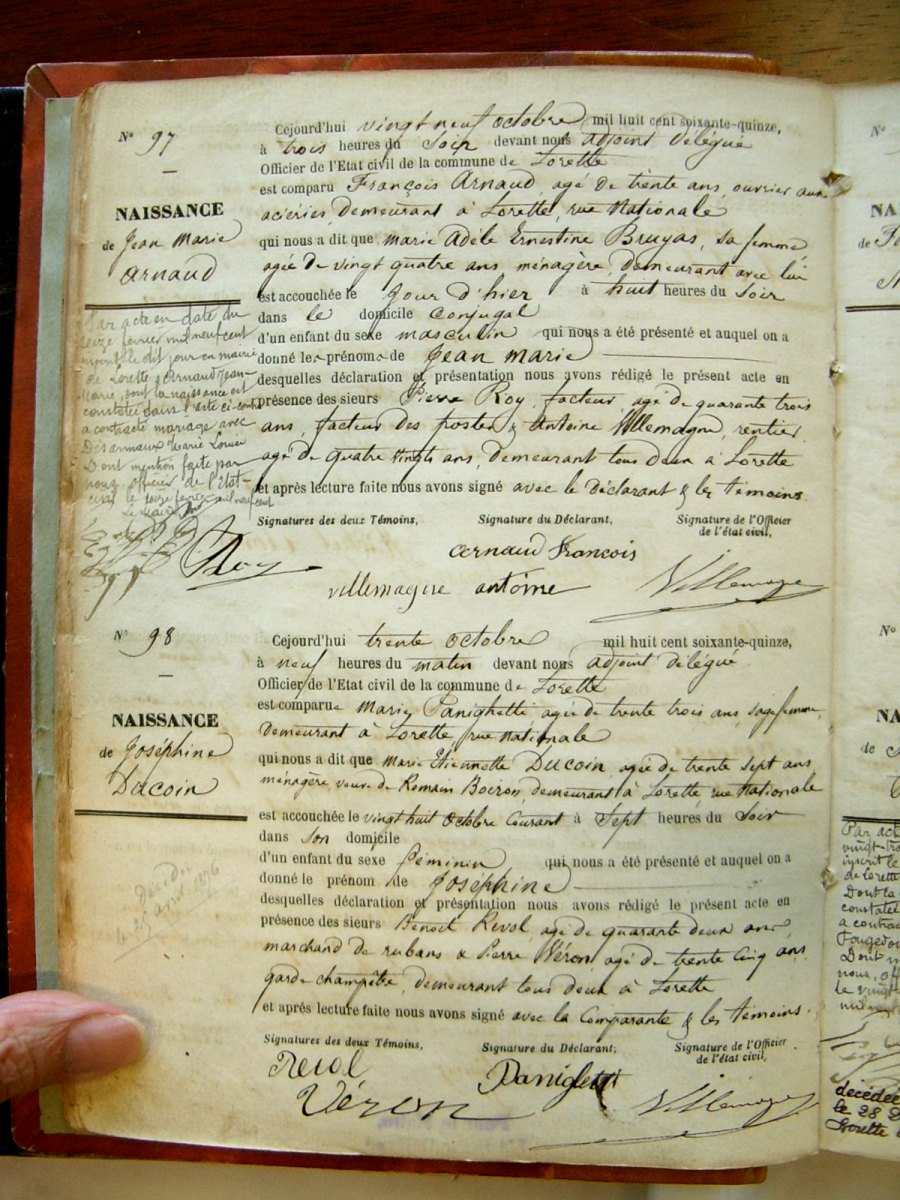 N° 97
NAISSANCE
de Jean Marie
Arnaud
Par acte en date du
seize février mil neuf cent
inscrit le dit jour en mairie
de Lorette, Arnaud Jean-
Marie, dont la naissance est
constatée dans l'acte ci-contre
a contracté mariage avec
Marie Louise
Dont mention faite par
nous officier de l'état-
civil le seize février mil neuf cent
Le Maire
Cejourd'hui vingt neuf octobre mil huit cent soixante-quinze,
à trois heures du Soir devant nous adjoint délégué
Officier de l'Etat civil de la commune de Lorette
est comparu François Arnaud, agé de trente ans, ouvrier aux
acieries, demeurant à Lorette, rue Nationale
qui nous a dit que Marie Adèle Ernestine Bruyas, sa femme
agée de vingt quatre ans, ménagère, demeurant avec lui
est accouchée le jour d'hier à huit heures du Soir
dans le domicile conjugal
d'un enfant du sexe masculin qui nous a été présenté et auquel on a
donné les prénoms de Jean Marie
desquelles déclaration et présentation nous avons rédigé le présent acte en
présence des sieurs Pierre Roy, facteur, agé de quarante trois
ans, facteur des postes & Antoine Villemagne, rentier,
agé de quatre vingts ans, demeurant tous deux à Lorette
et après lecture faite nous avons signé avec le Déclarant & les témoins
Signatures des deux Témoins, Signature du Déclarant, Signature de l'Officier
de l'état civil,
Roy Arnaud François
villemagne antoine Villemagne
N° 98
NAISSANCE
de Joséphine
Ducoin
Décédée
le avril 1876
Cejourd'hui trente octobre mil huit cent soixante-quinze,
à neuf heures du matin devant nous adjoint délégué
Officier de l'Etat civil de la commune de Lorette
est comparue Marie Panighetti agée de trente trois ans sagefemme,
demeurant à Lorette, rue Nationale
qui nous a dit que Marie Etiennette Ducoin, agée de trente sept ans
ménagère, veuve de Romain Boiron, demeurant à Lorette rue Nationale
est accouchée le vingt huit octobre Courant à Sept heures du Soir
dans son domicile
d'un enfant du sexe féminin qui nous a été présenté et auquel on a
donné le prénom de Joséphine
desquelles déclaration et présentation nous avons rédigé le présent acte en
présence des sieurs Benoit Revol, agé de quarante deux ans
marchand de rubans & Pierre Véron, agé de trente Cinq ans
garde champêtre, demeurant tous deux à Lorette
et après lecture faite nous avons signé avec la Comparante & les témoins.
Signatures des deux Témoins, Signature du Déclarant, Signature de l'Officier
de l'état civil,
Revol Panighetti
Véron Villemagne
N°
NA
de
N°
NA
de
Par acte
vingt-tro
inscrit le
de Lorette
Dont la
constatée
a contract
Dont m
nous, off
le vingt
décédée
le 28 D
Lorette